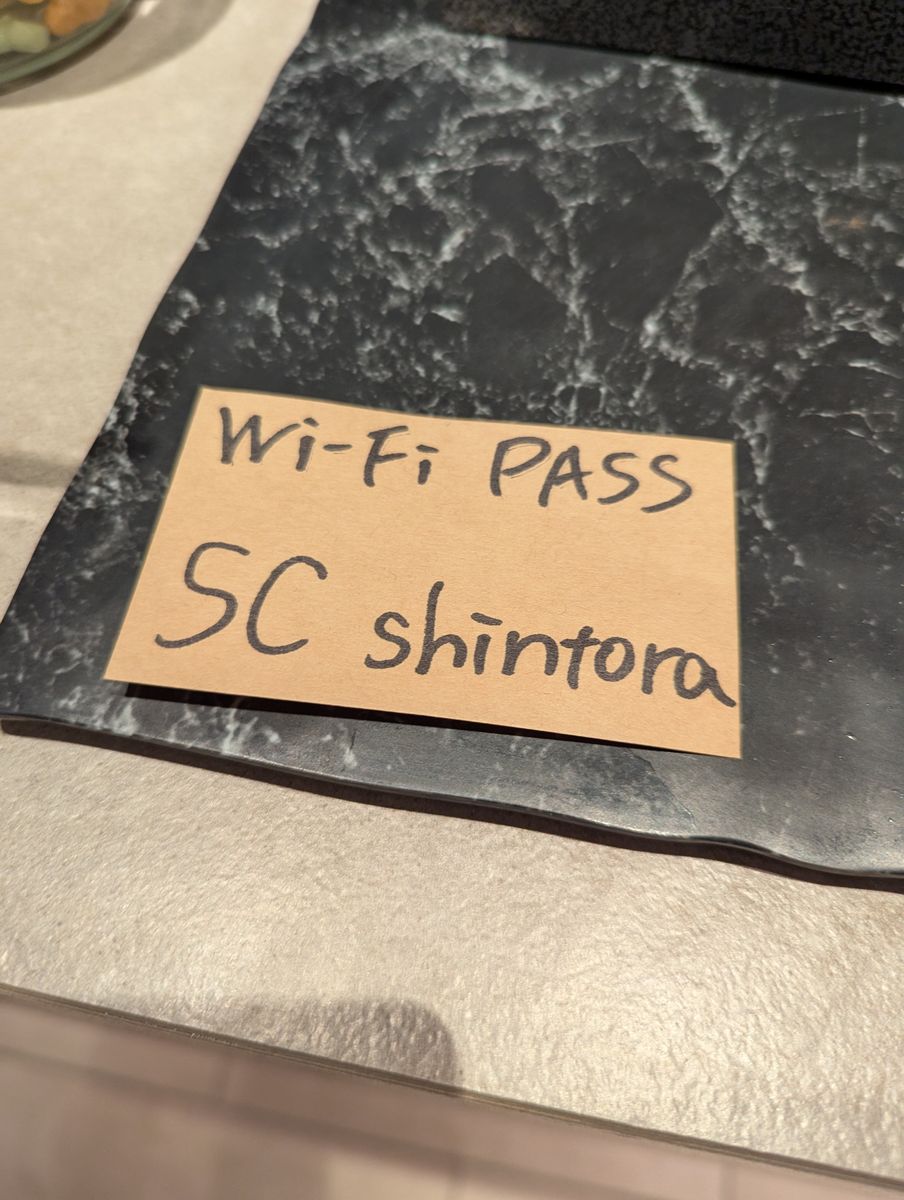 Wi-Fi PASS
SC shintora